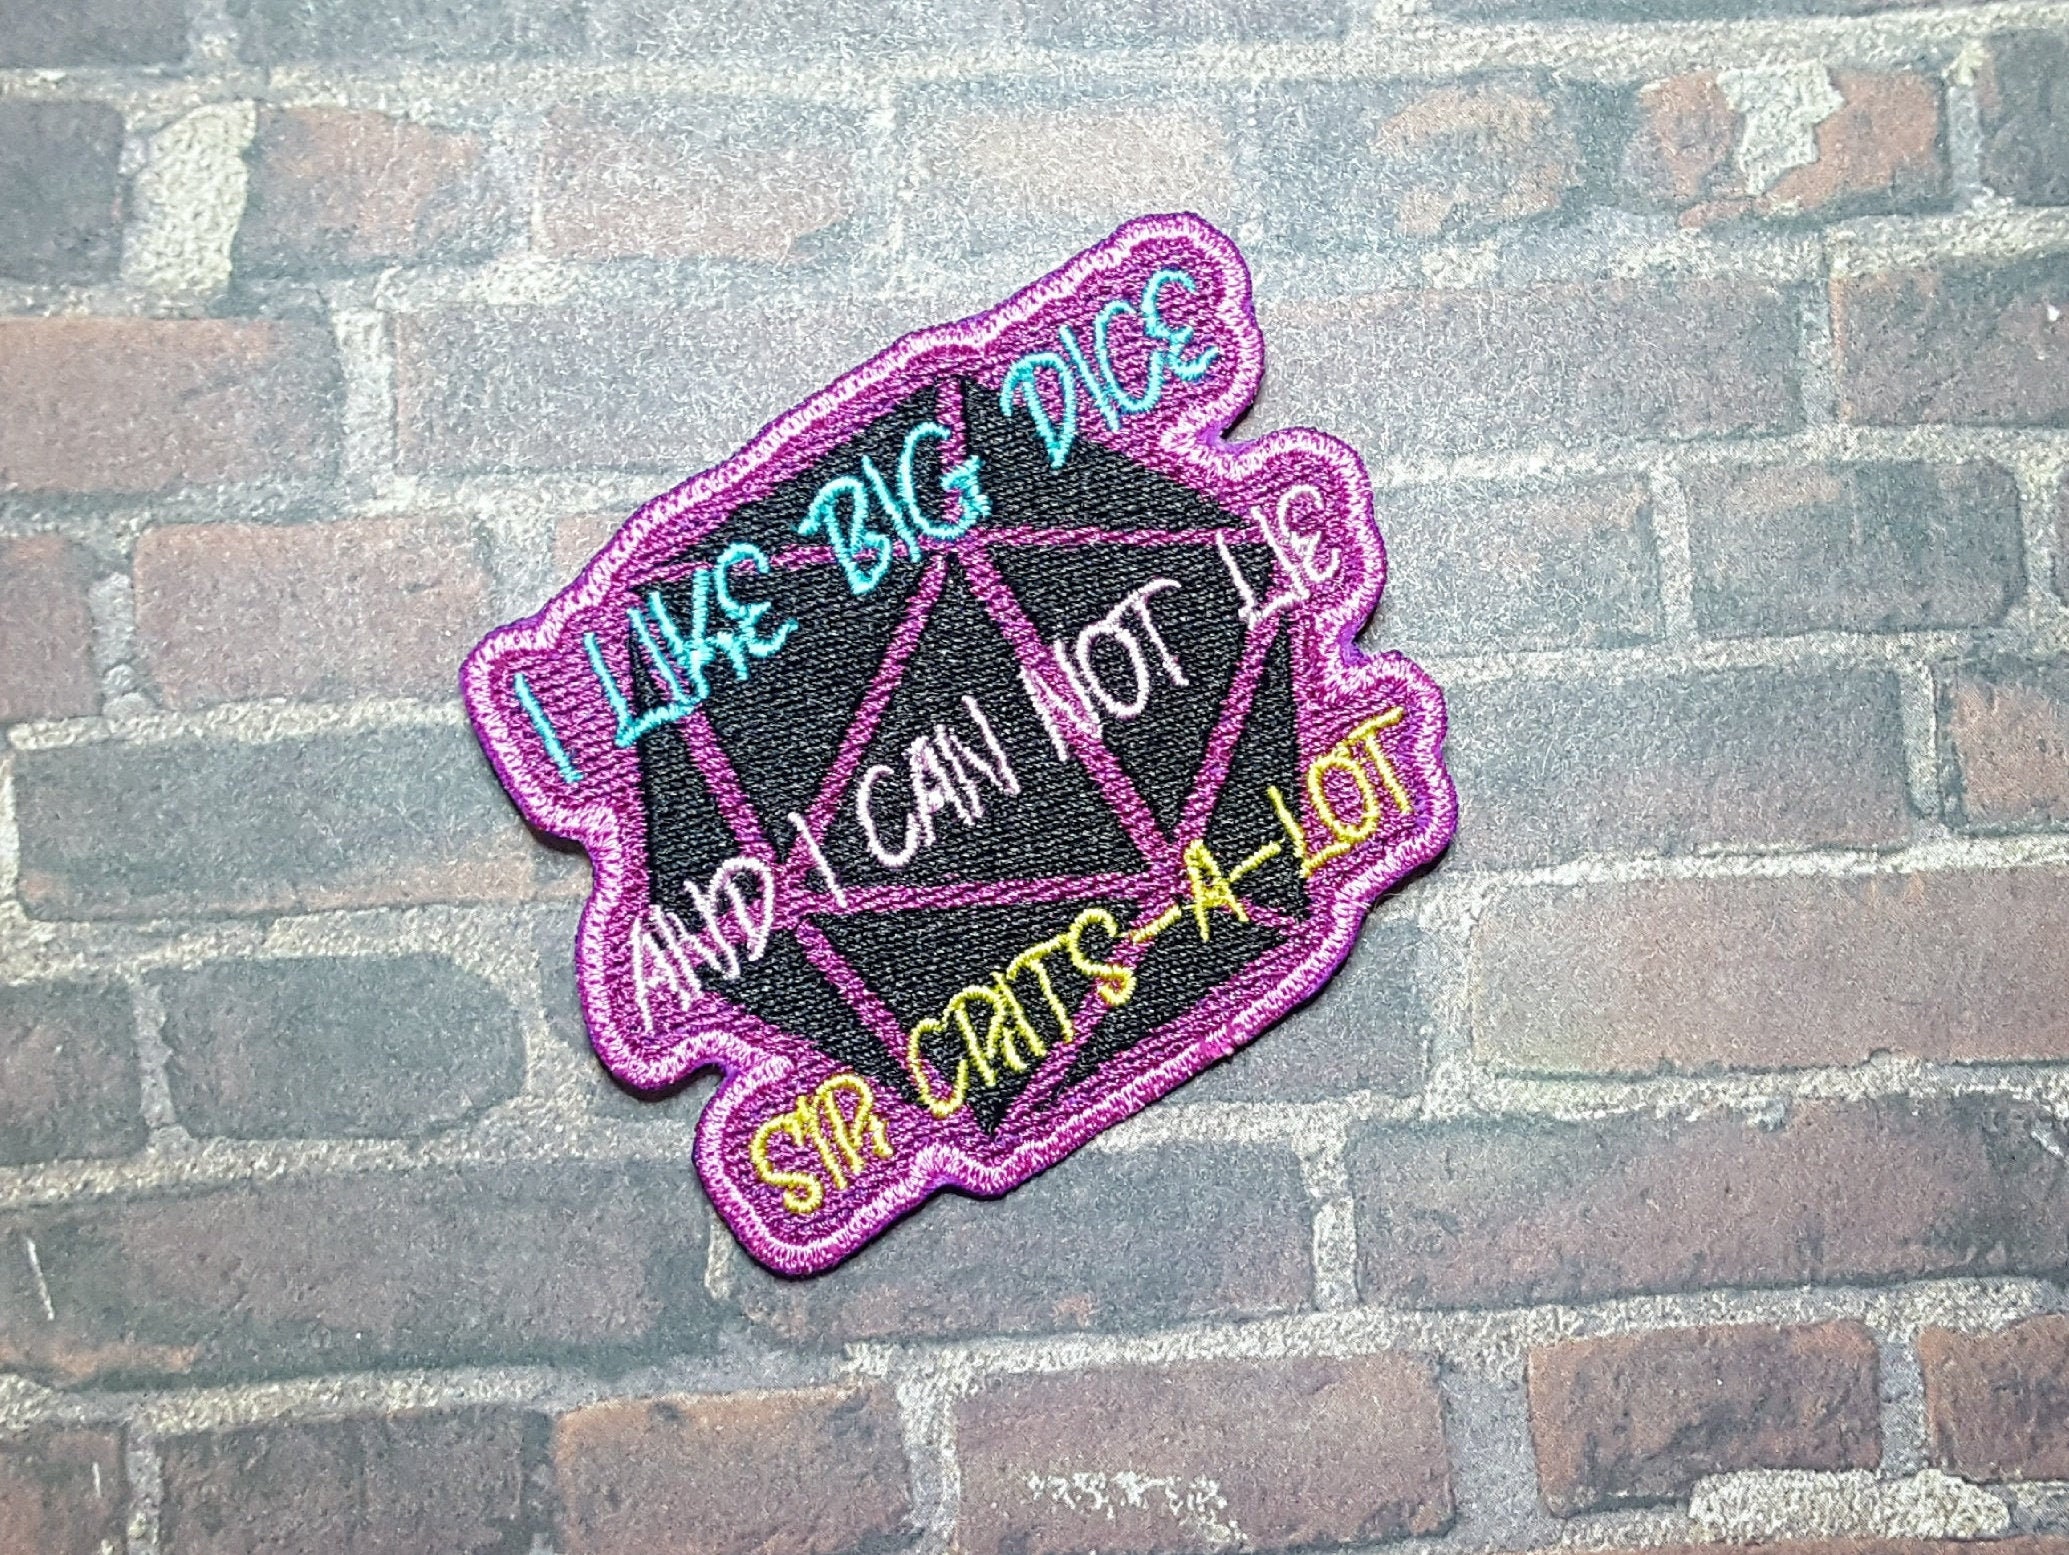 I LIKE BIG DICE
AND I CAN NOT LIE
SIR CRITS-A-LOT